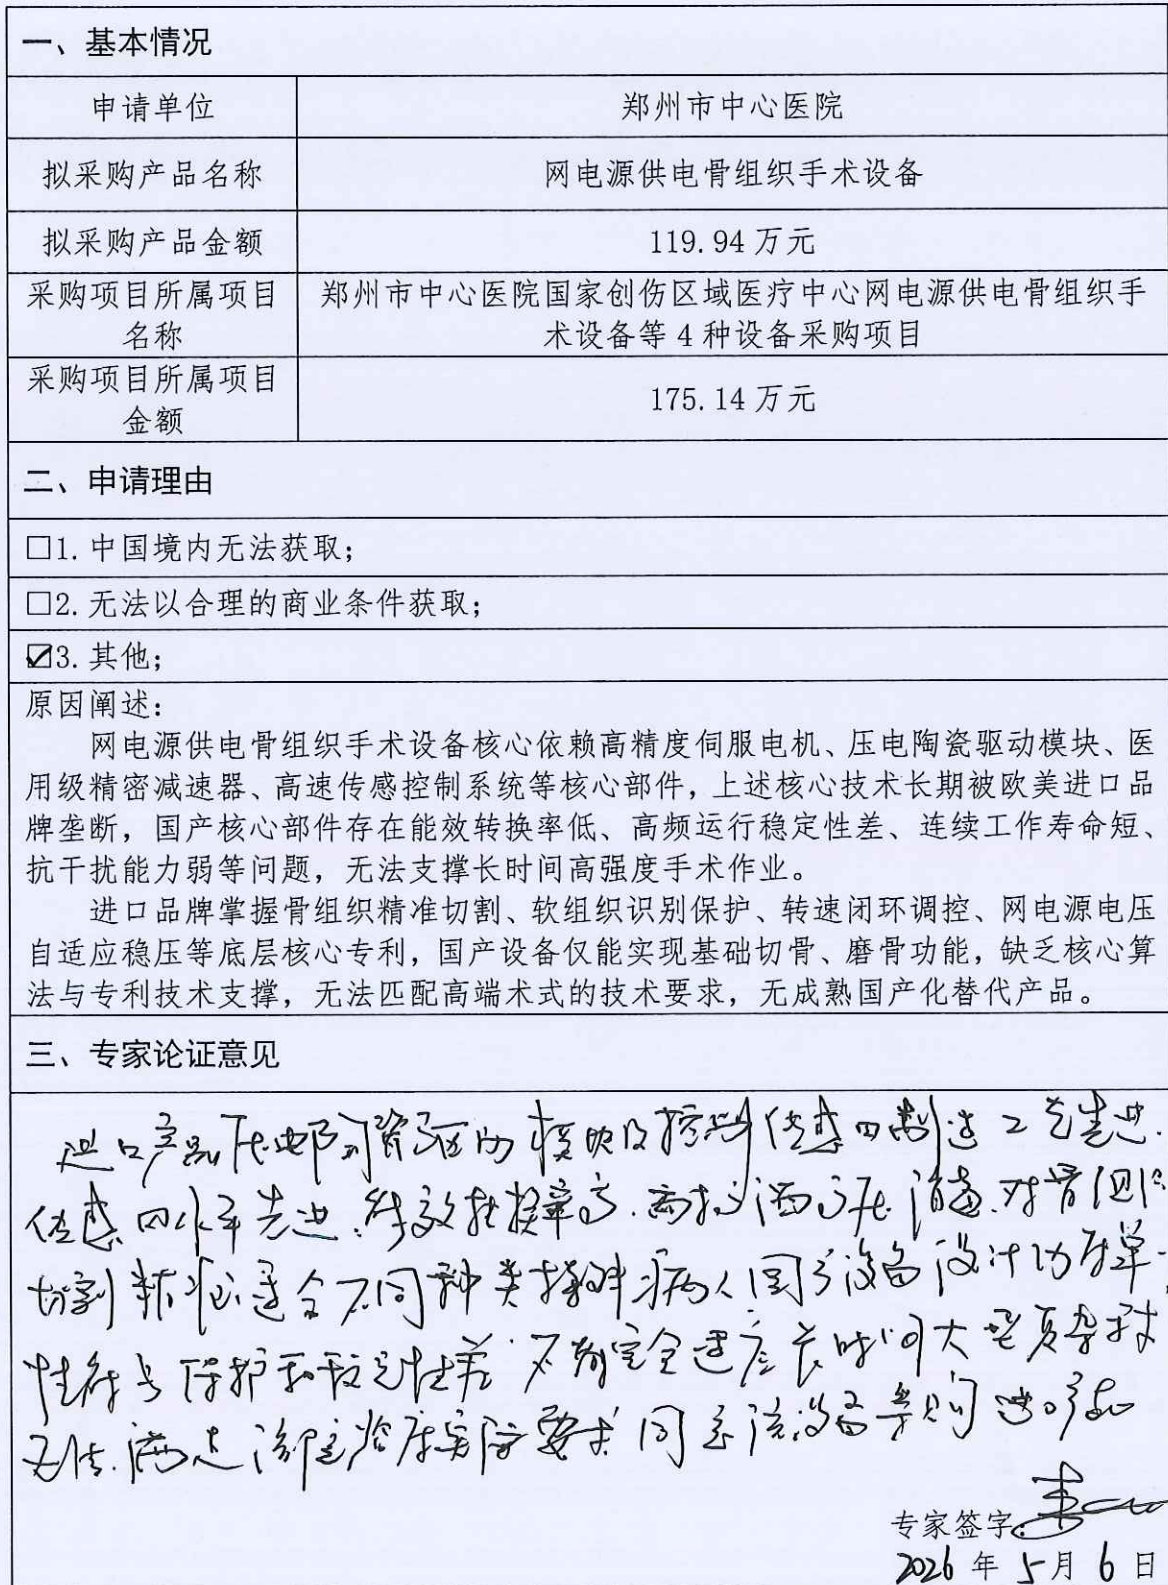 一、基本情况
申请单位
郑州市中心医院
拟采购产品名称
网电源供电骨组织手术设备
拟采购产品金额
119.94万元
采购项目所属项目
名称
郑州市中心医院国家创伤区域医疗中心网电源供电骨组织手
术设备等4种设备采购项目
采购项目所属项目
金额
175.14万元
二、申请理由
□1.中国境内无法获取；
□2.无法以合理的商业条件获取；
☑3.其他；
原因阐述：
网电源供电骨组织手术设备核心依赖高精度伺服电机、压电陶瓷驱动模块、医
用级精密减速器、高速传感控制系统等核心部件，上述核心技术长期被欧美进口品
牌垄断，国产核心部件存在能效转换率低、高频运行稳定性差、连续工作寿命短、
抗干扰能力弱等问题，无法支撑长时间高强度手术作业。
进口品牌掌握骨组织精准切割、软组织识别保护、转速闭环调控、网电源电压
自适应稳压等底层核心专利，国产设备仅能实现基础切骨、磨骨功能，缺乏核心算
法与专利技术支撑，无法匹配高端术式的技术要求，无成熟国产化替代产品。
三、专家论证意见
进口产品压电陶瓷驱动模块及控制传感 制造工艺先进.
传感 水平先进.能效转换率高.耐高温高压消毒.对骨组织
切割精准适合不同种类 病人国产设备设计功能单一
性能与保护和稳定性差 不能完全适应长时间大型复杂手术
无法满足 临床实际要求 同意该设备采购进口产品
专家签字：
2026年5月6日